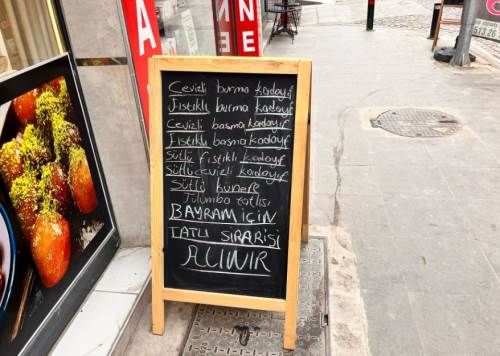 A
NE
NE
Cevizli burma kadayıf
Fıstıklı burma kadayıf
Cevizli basma kadayıf
Fıstıklı basma kadayıf
Sütlü fıstıklı kadayıf
Sütlü cevizli kadayıf
Sütlü künefe
Tulumba tatlısı
BAYRAM İÇİN
TATLI SİPARİŞİ
ALINIR